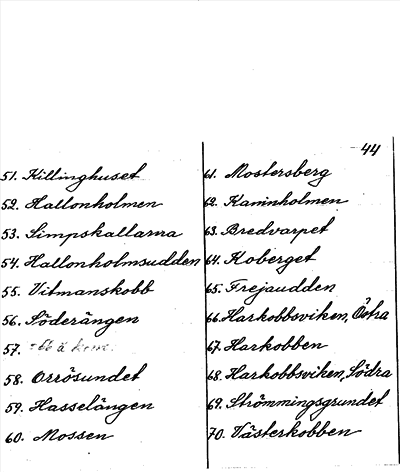 44
51. Killinghuset
52. Hallonholmen
53. Simpskallarna
54. Hallonholmsudden
55. Vitmanskobb
56. Söderängen
57.
58. Orrösundet
59. Hasselängen
60. Mossen
61. Mostersberg
62. Kaninholmen
63. Bredvarpet
64. Koberget
65. Frejaudden
66. Harkobbsviken, Östra
67. Harkobben
68. Harkobbsviken, Södra
69. Strömmingsgrundet
70. Västerkobben